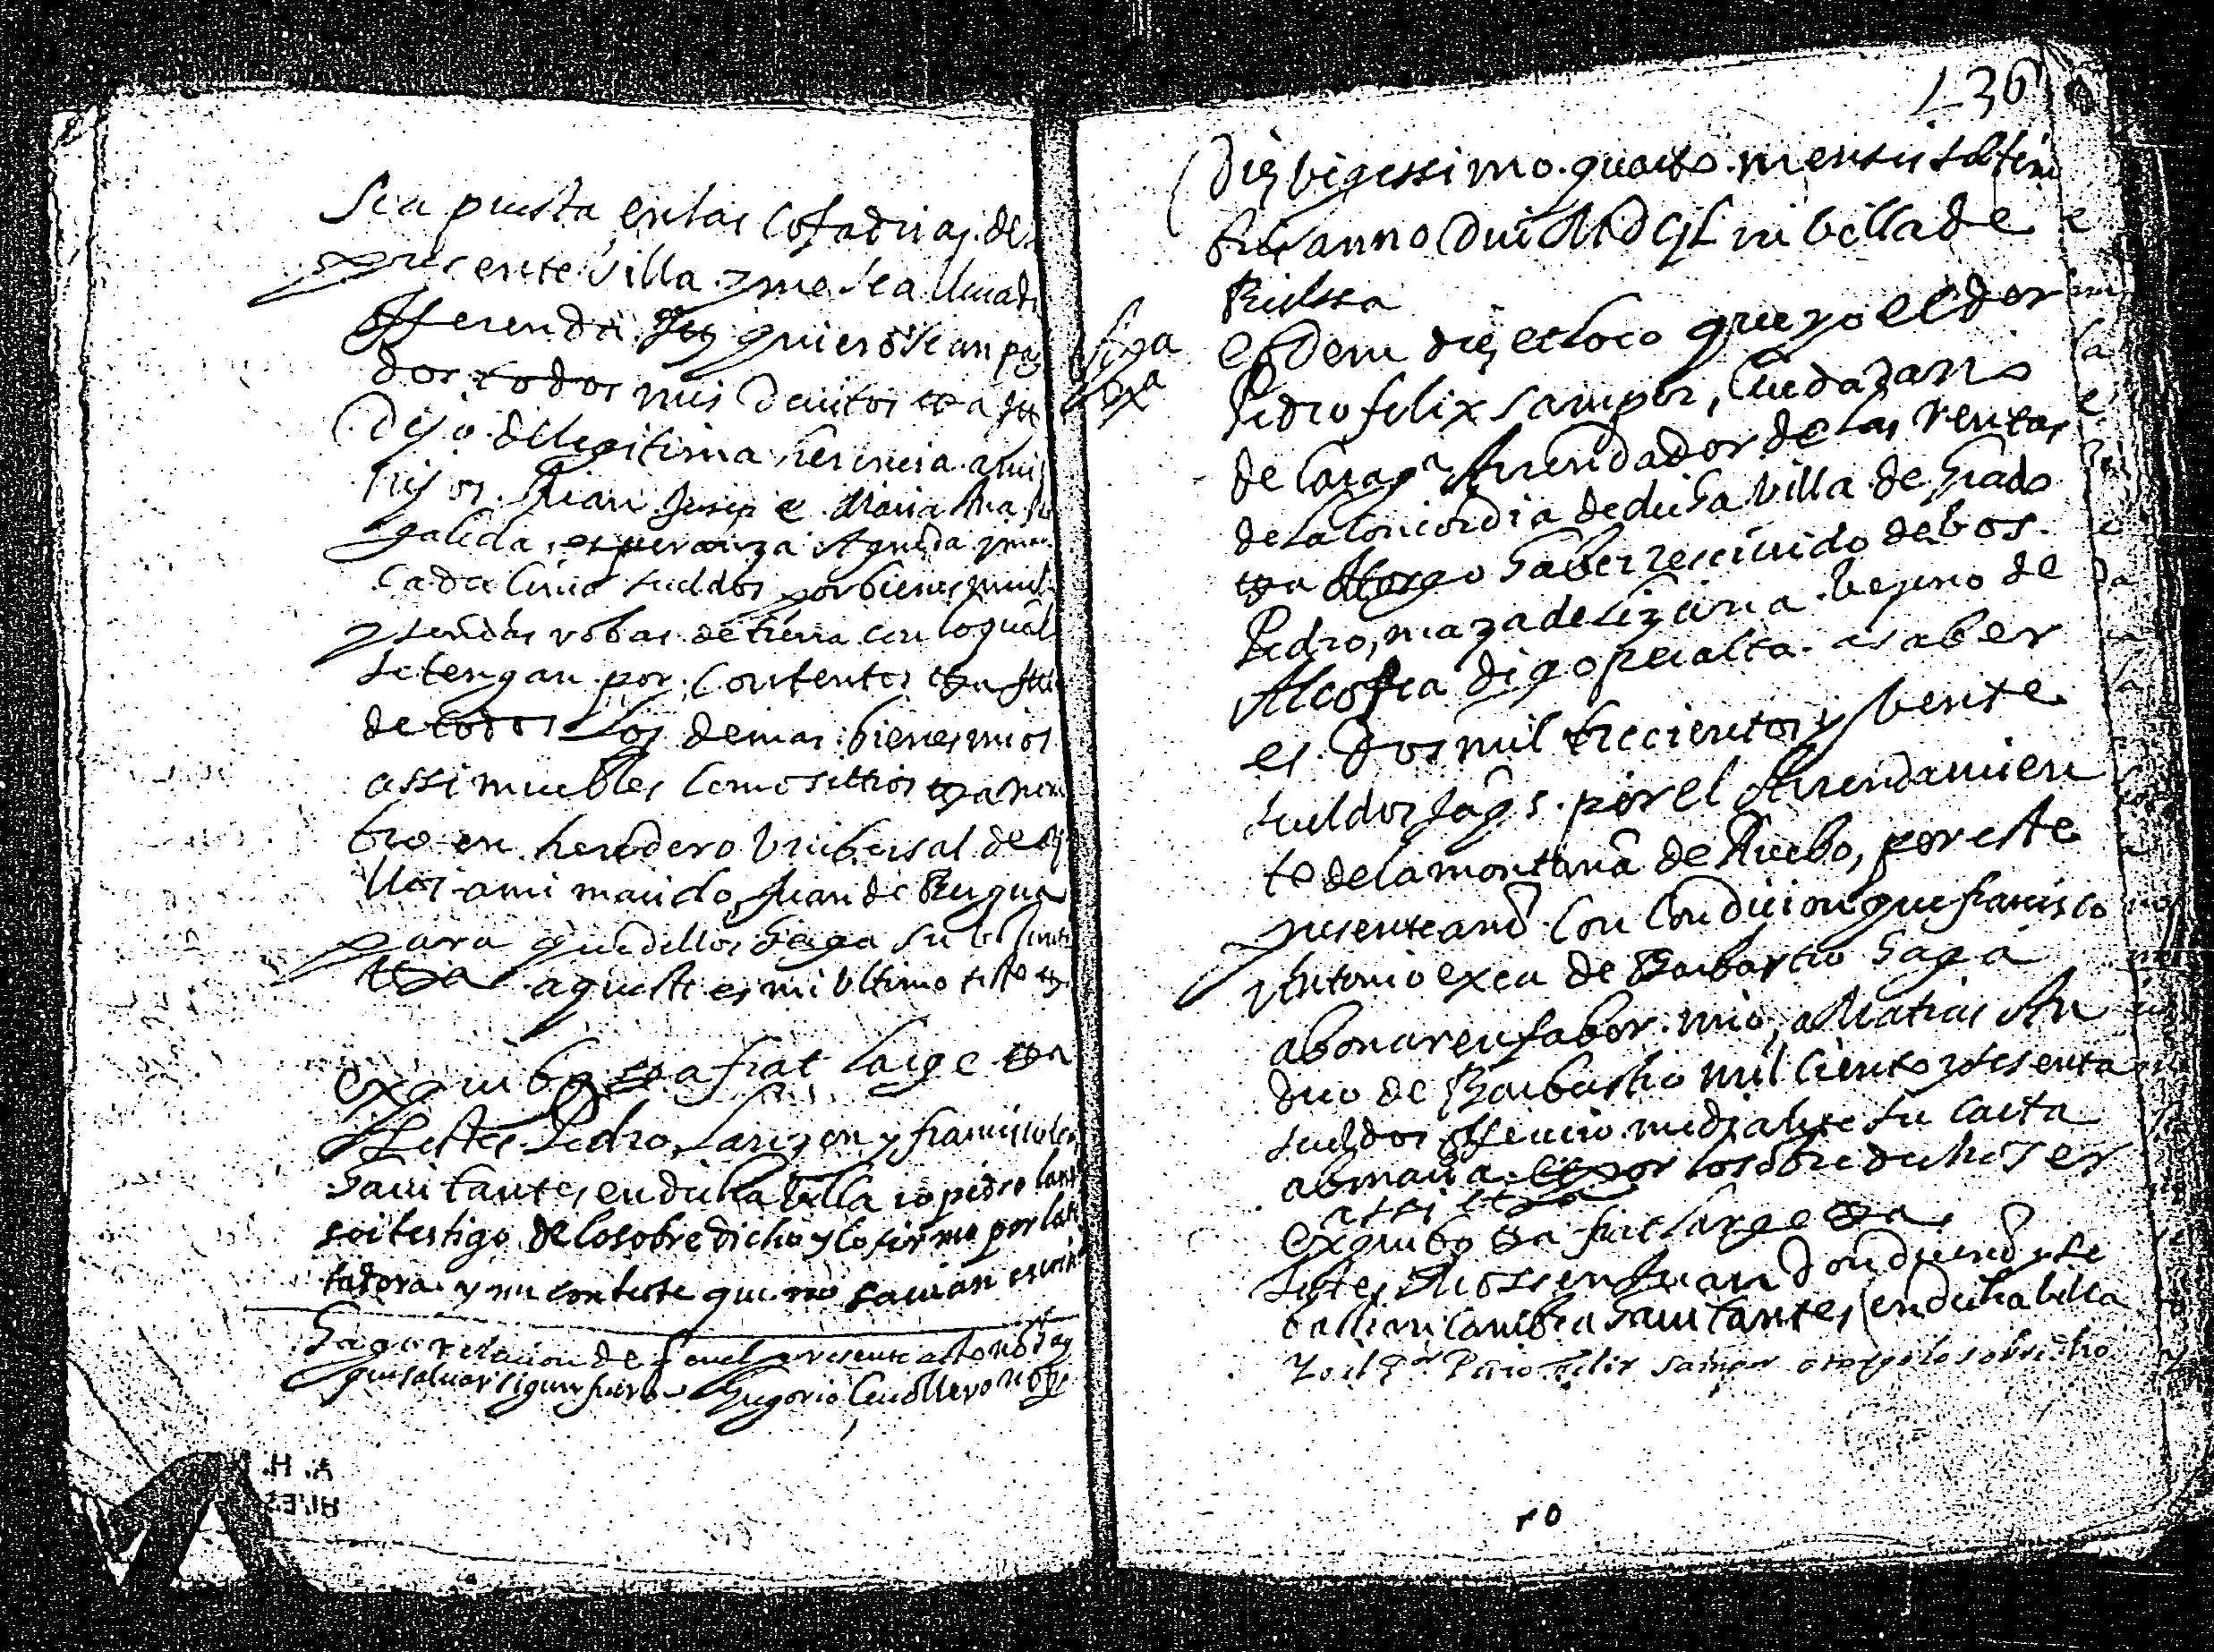 Sea puesta en las Cofadrias de
presente Villa y me sea lleuada
offerenda Itt quiero sean paga
dos todos mis deuitos etta Itt
Dejo de legitima herencia a mis
hijos Juan Jusep e Maria Ana
galida, esperanza Agueda y
Cada Cinco sueldos por bienes muebl
y sendas robas de tierra con lo qual
se tengan por Contentos etta Itt
de todos los demas bienes mios
assi muebles Como sittios etta nom
bro en heredero Vnibersal de aq
llos a mi marido Juan de Rugua
para que dellos haga su bolunta
etta aqueste es mi Vltimo testo
ex quibus etta fiat large etta
Testes Pedro Lanzon y francisco
hauitantes en dicha Villa io pedro lanz
soi testigo de lo sobredicho y lo firmo por la tes
tadora y mi conteste que no sauian escriu
Hago relacion de
que saluar sigun fuero Gregorio Ceuollero
136
Die Vigessimo quarto mensis septem
bris anno Dni MDCIL in Villa de
Siga
exa
Eodem die et loco que yo el Dor
Pedro felix samper, Ciudadano
de Caragª Arrendador de las rentas
de la Concordia de dicha Villa de Grado
etta Atorgo haber resciuido de bos
Pedro maza de Lizana Vezino de
Alcosea digo peralta asaber
es Dos mil trecientos y bente
sueldos Jaqs por el Arrendamien
to de la montaña de Ruebo, por este
presente año Con Condicion que francisco
Antonio exea de Barbastro haga
abonar en fabor mio, a Matias An
dreo de Barbastro mil Ciento y sesenta
sueldos offrecio mediante su carta
abonaria et por lo sobre dicho ser
assi etta
Ex quibus etta fiat large etta
Testes Mossen Juan Dondueño y Se
bastian Cambra hauitantes en dicha billa
Yo el Dor Pedro Felix Samper otorgo lo sobredicho